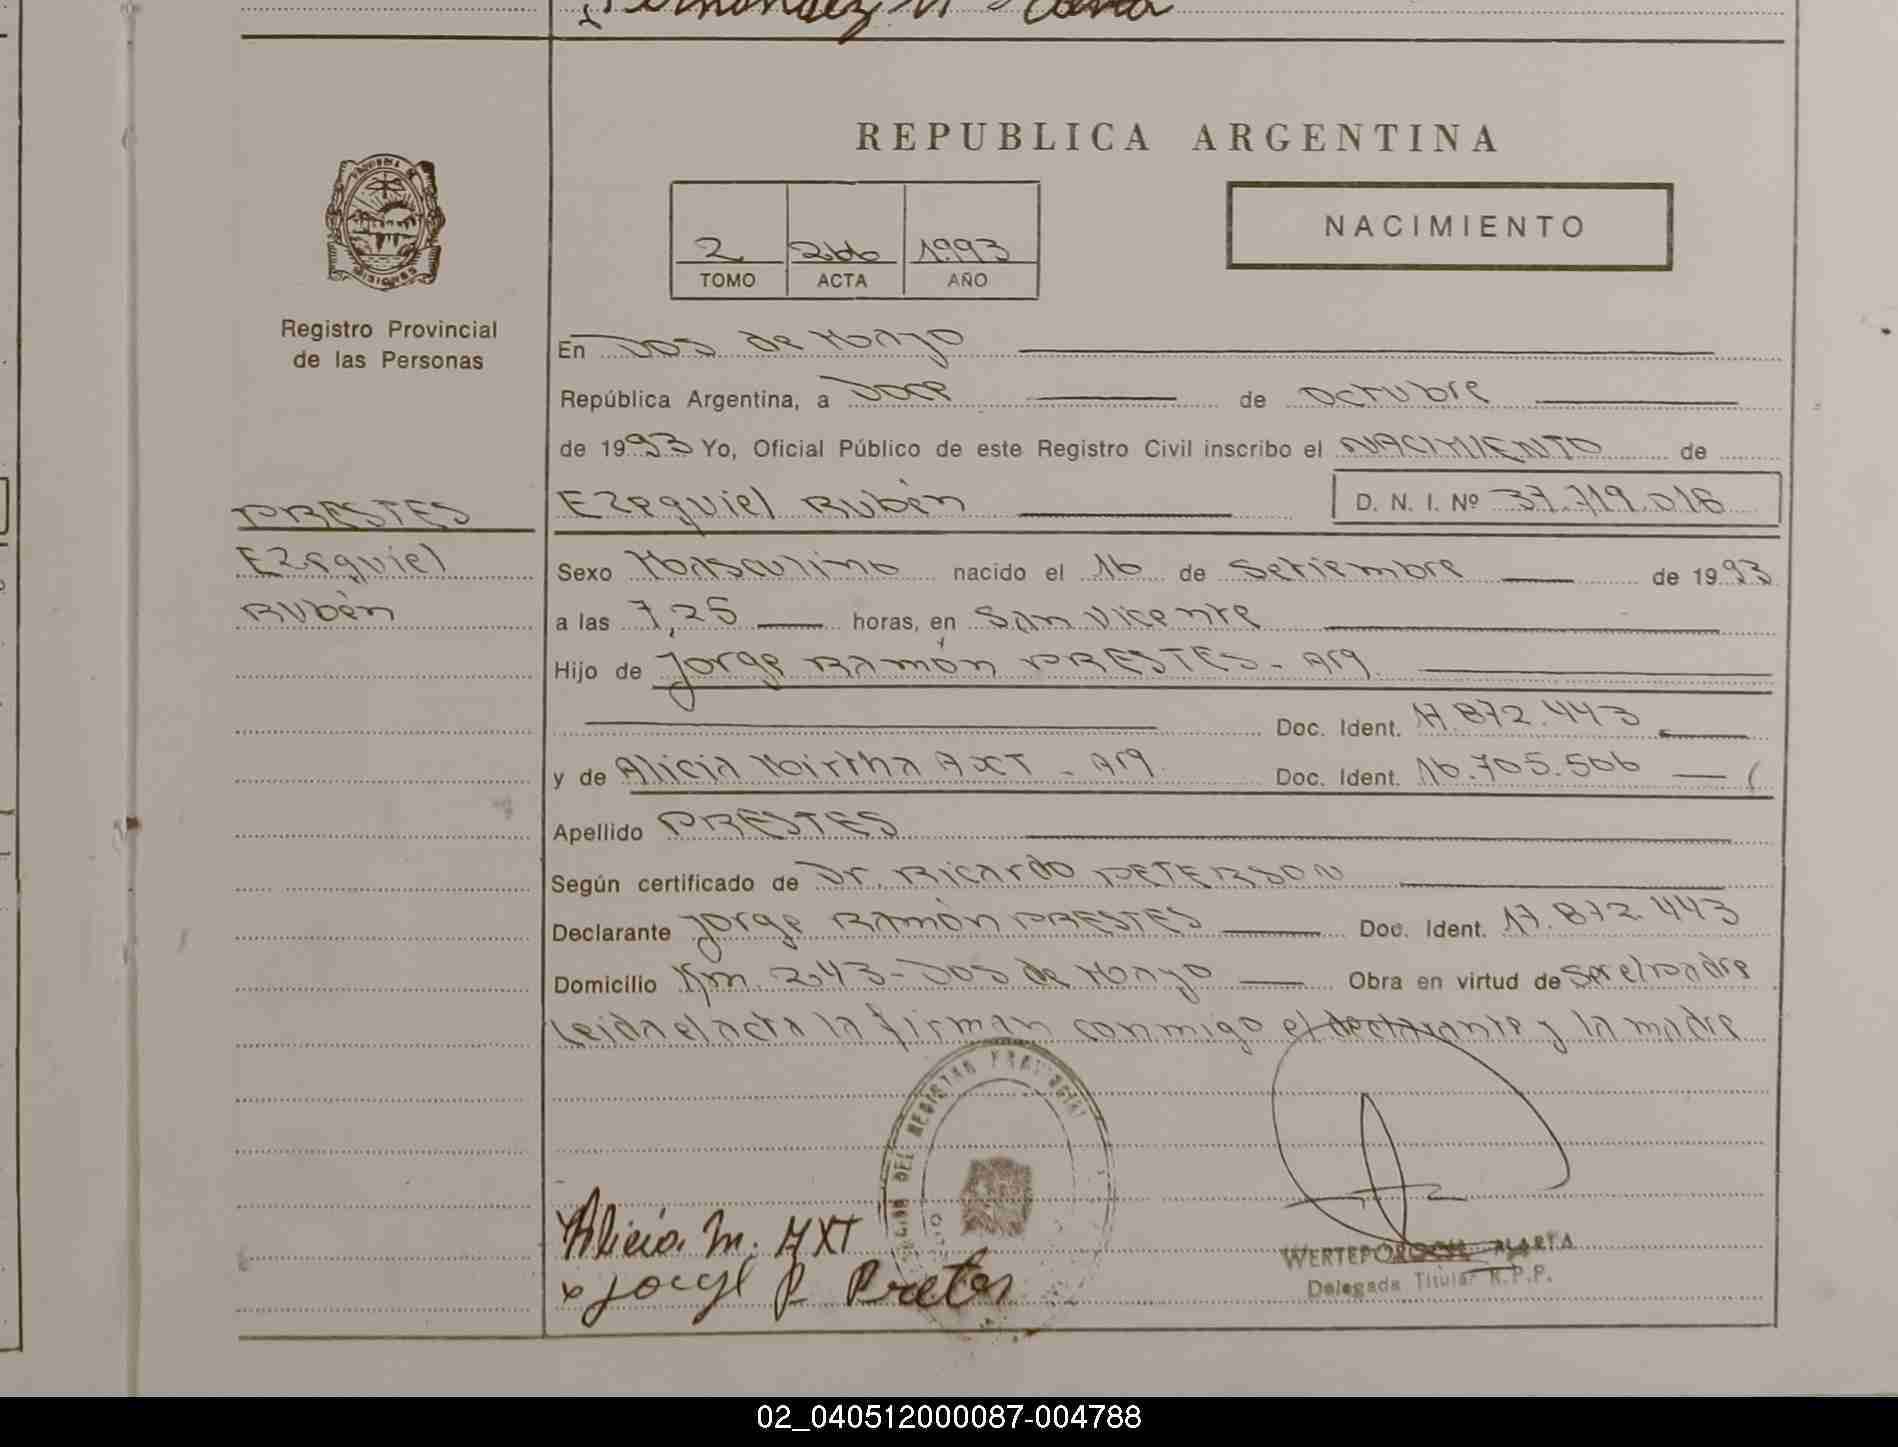 REPUBLICA ARGENTINA
NACIMIENTO
2 266 1993
TOMO ACTA AÑO
MISIONES
Registro Provincial
de las Personas
En Dos de Mayo
República Argentina, a Doce de Octubre
de 1993 Yo, Oficial Público de este Registro Civil inscribo el NACIMIENTO de
PRESTES
Ezequiel Rubén D. N. I. Nº 37.719.018
Ezequiel
Rubén
Sexo Masculino nacido el 16 de Setiembre de 1993
a las 7,25 horas, en San Vicente
Hijo de Jorge Ramón PRESTES - Arg.
Doc. Ident. 17.872.443
y de Alicia Mirtha AXT - Arg. Doc. Ident. 16.705.506
Apellido PRESTES
Según certificado de Dr. Ricardo PETERSON
Declarante Jorge Ramón PRESTES Doc. Ident. 17.872.443
Domicilio Km. 243 - Dos de Mayo Obra en virtud de ser el padre
Leida el acta la firman conmigo el declarante y la madre
DEL REGISTRO PROVINCIAL
Alicia M. AXT
x Jorge R Pretes
MARTA
Delegada Titular R.P.P.
02_040512000087-004788